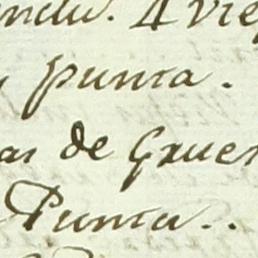 4 Vie
punta.
as de Grues
Punta..